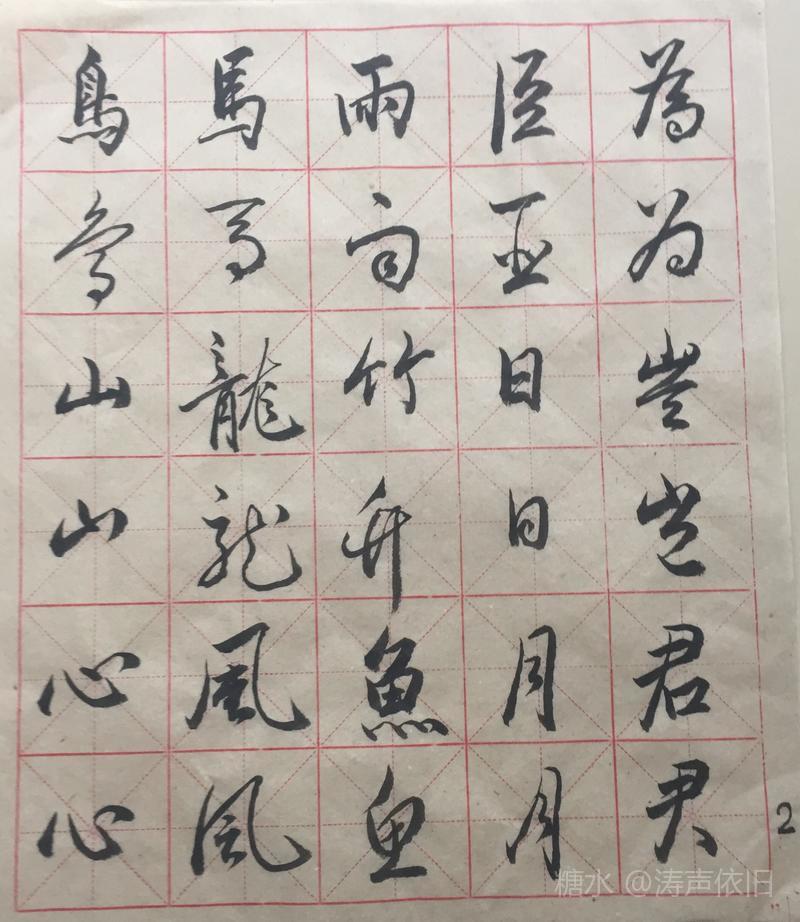 為為豈豈君君
臣臣日日月月
雨雨竹竹魚魚
馬馬龍龍風風
鳥鳥山山心心
2
糖水 @涛声依旧